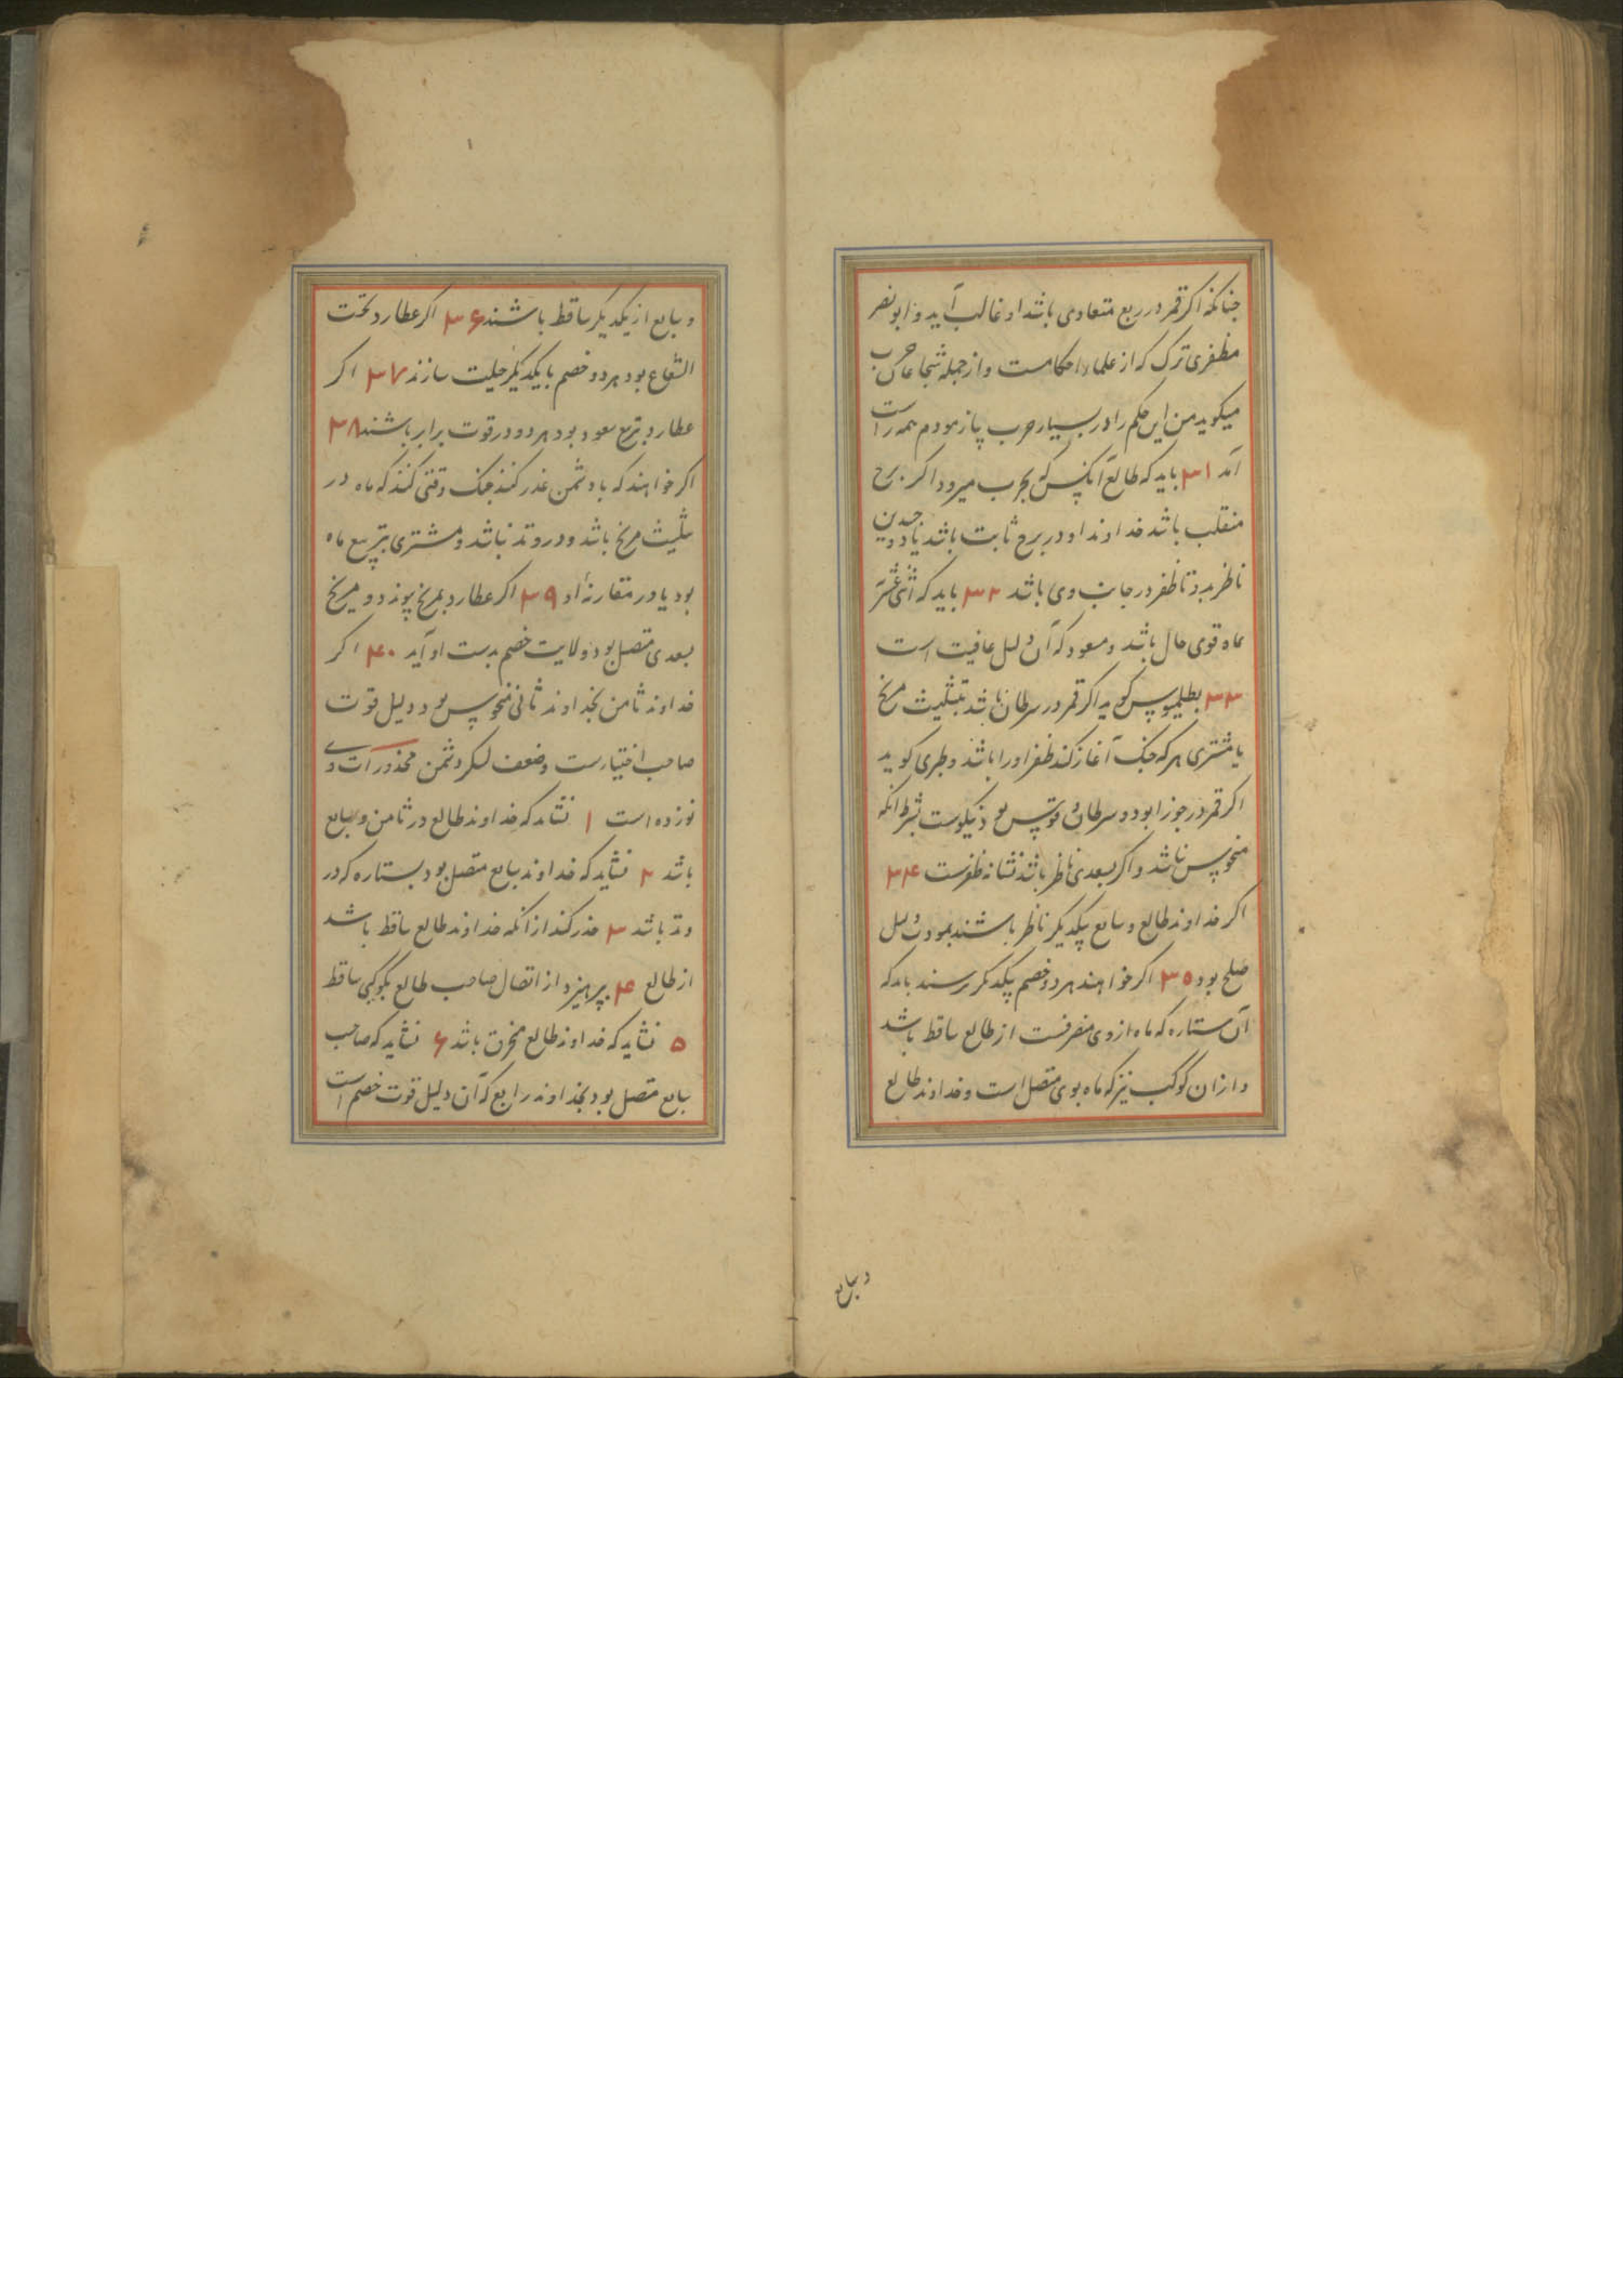 چنانکه اکر قمر در ربع متعادی باشد او غالب آید و ابونصر
مظفری ترک که از علماء احکامست و از جمله شجاعان حرب
میکوید من این حکم را در بسیار حرب بیازمودم همه راست
آمد ۳۱ باید که طالع آنکس که بحرب میرود اکر برج
منقلب باشد خداوند او در برج ثابت باشد یا ذو جسدین
ناظر بدو تا ظفر در جانب وی باشد ۳۲ باید که اثنی عشریّه
ماه قوی حال باشد و مسعود که آن دلیل عافیت است
۳۳ بطلیموس کوید اکر قمر در سرطان باشد بتثلیث مریخ
یا مشتری هر که جنک آغاز کند ظفر او را باشد و طبری کوید
اکر قمر در جوزا بود و سرطان و قوس نیکوست بشرط آنکه
منحوس نباشد و اکر بسعدی ناظر باشد نشانه ظفرست ۳۴
اکر خداوند طالع و سابع بیکدیکر ناظر باشند بمودت دلیل
صلح بود ۳۵ اکر خواهند هر دو خصم بیکدیکر نرسند باید که
آن ستاره که ماه از وی منصرفست از طالع ساقط باشد
و از ان کوکب نیز که ماه بوی متصل است و خداوند طالع
و سابع
و سابع از یکدیکر ساقط باشند ۳۶ اکر عطارد تحت
الشعاع بود هر دو خصم با یکدیکر حیلت سازند ۳۷ اکر
عطارد بتربیع سعود بود هر دو در قوت برابر باشند ۳۸
اکر خواهند که با دشمن غدر کنند جنک وقتی کنند که ماه در
تثلیث مریخ باشد و در وتد نباشد و مشتری بتربیع ماه
بود یا در مقارنهٔ او ۳۹ اکر عطارد بمریخ پیوندد و مریخ
بسعدی متصل بود ولایت خصم بدست او آید ۴۰ اکر
خداوند ثامن بخداوند ثانی منحوس بود دلیل قوت
صاحب اختیارست و ضعف لشکر دشمن محذورات وی
نوزده است ۱ نشاید که خداوند طالع در ثامن و سابع
باشد ۲ نشاید که خداوند سابع متصل بود بستاره که در
وتد باشد ۳ حذر کند از آنکه خداوند طالع ساقط باشد
از طالع ۴ بپرهیزد از اتصال صاحب طالع بکوکبی ساقط
۵ نشاید که خداوند طالع محترق باشد ۶ نشاید که صاحب
سابع متصل بود بخداوند رابع که آن دلیل قوت خصم است